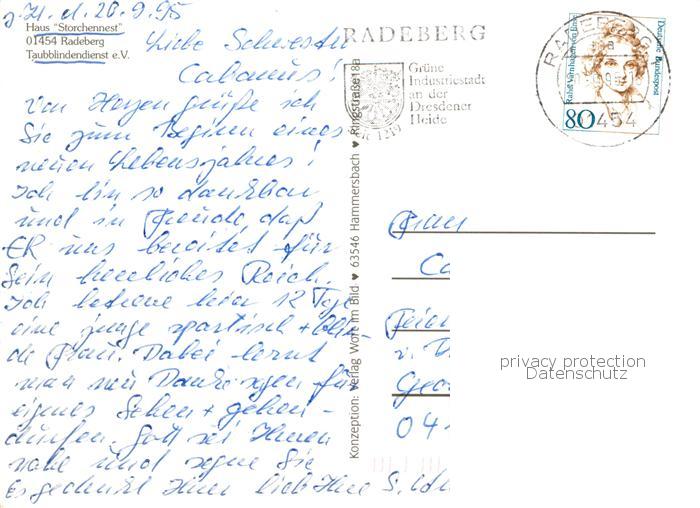 z. Zt. d. 20.9.95
Haus "Storchennest"
01454 Radeberg
Taubblindendienst e.V.
Liebe Schwester
Cabanus!
Von Herzen grüße ich
Sie zum Beginn eines
neuen Lebensjahres!
Ich bin so dankbar
und in Freude daß
ER uns bereitet für
Sein herrliches Reich.
Ich betreue hier 12 Tage
eine junge spastisch + blin-
de Frau. Dabei lernt
man neu Danksagen für
eigenes Sehen + gehen-
dürfen. Gott sei Ihnen
nahe und segne Sie
Es gedenkt Ihrer lieb Ihre S.
Konzeption: Verlag Wort im Bild ♥ 63546 Hammersbach ♥ Ringstraße 18a
RADEBERG
Grüne
Industriestadt
an der
Dresdener
Heide
1219
RADEBERG
01454
Deutsche Bundespost
Rahel Varnhagen von Ense
80
Frau
Ca
Feier
Geo
04
privacy protection
Datenschutz